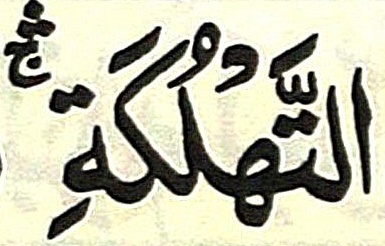 التَّهْلُكَةِ ۛۚ